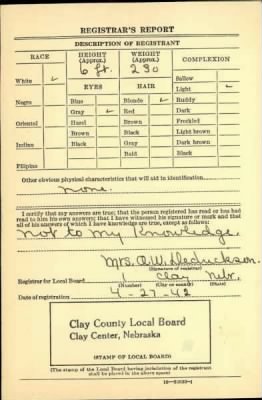 REGISTRAR'S REPORT
DESCRIPTION OF REGISTRANT
RACE HEIGHT (Approx.) WEIGHT (Approx.) COMPLEXION
6 ft. 230
White ✓ Sallow
EYES HAIR Light ✓
Negro Blue Blonde ✓ Ruddy
Gray ✓ Red Dark
Oriental Hazel Brown Freckled
Brown Black Light brown
Indian Black Gray Dark brown
Bald Black
Filipino
Other obvious physical characteristics that will aid in identification
None.
I certify that my answers are true; that the person registered has read or has had
read to him his own answers; that I have witnessed his signature or mark and that
all of his answers of which I have knowledge are true, except as follows:
Not to my Knowledge.
Mrs. A.W.
(Signature of registrar)
Registrar for Local Board 1 Clay Nebr.
(Number) (City or county) (State)
Date of registration 4-27-42
Clay County Local Board
Clay Center, Nebraska
(STAMP OF LOCAL BOARD)
(The stamp of the Local Board having jurisdiction of the registrant
shall be placed in the above space)